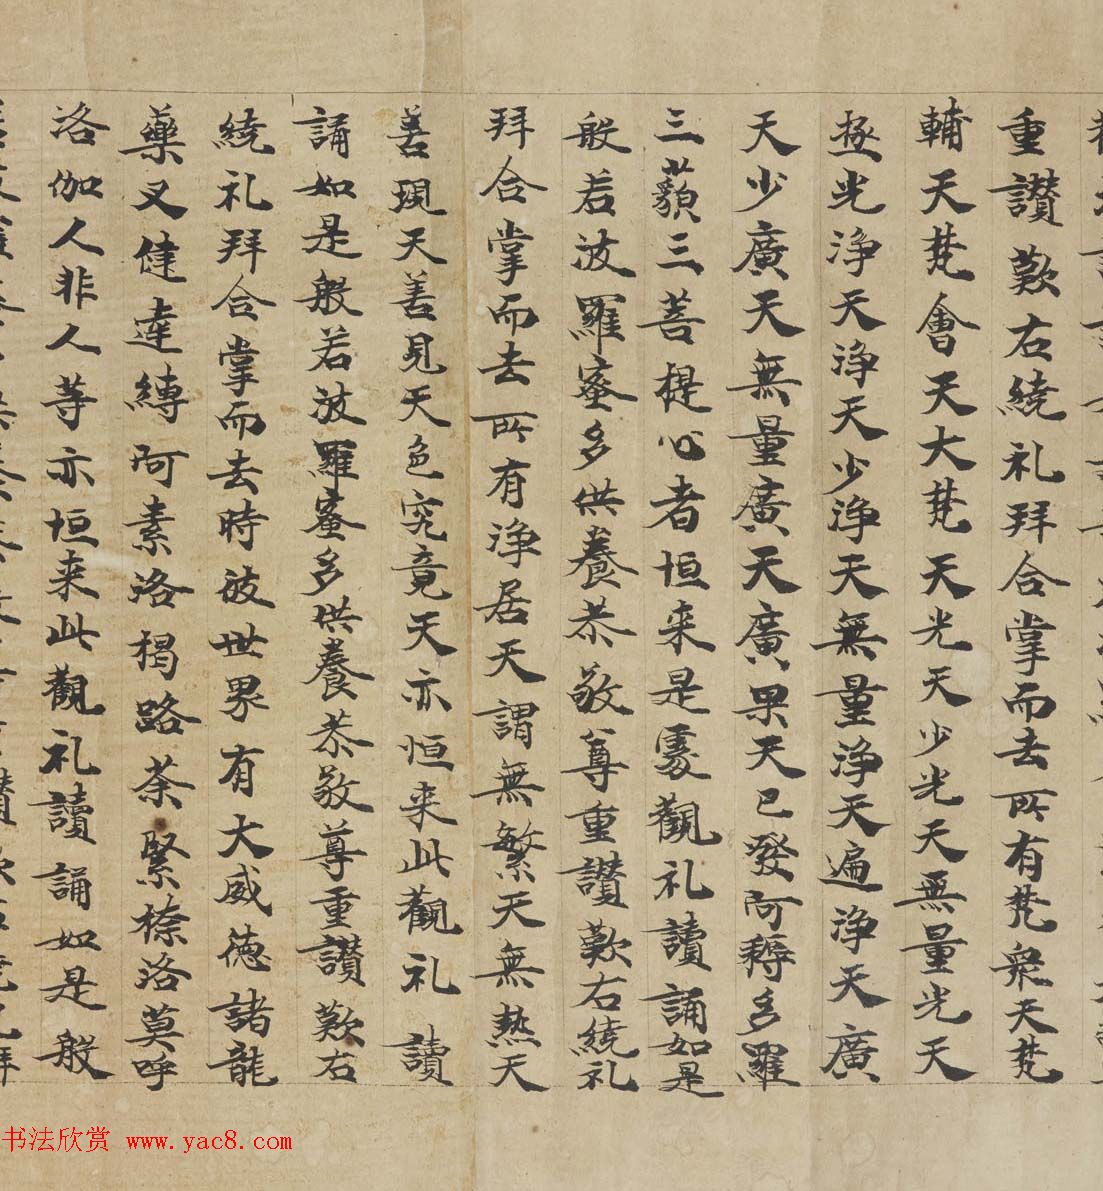 重讃歎右繞礼拜合掌而去所有梵衆天梵
輔天梵會天大梵天光天少光天無量光天
極光浄天浄天少浄天無量浄天遍浄天廣
天少廣天無量廣天廣果天已發阿耨多羅
三藐三菩提心者恒来是處觀礼讀誦如是
般若波羅蜜多供養恭敬尊重讃歎右繞礼
拜合掌而去所有浄居天謂無繁天無熱天
善現天善見天色究竟天亦恒来此觀礼讀
誦如是般若波羅蜜多供養恭敬尊重讃歎右
繞礼拜合掌而去時彼世界有大威德諸龍
藥叉健達縛阿素洛揭路荼緊捺洛莫呼
洛伽人非人等亦恒来此觀礼讀誦如是般
书法欣赏 www.yac8.com